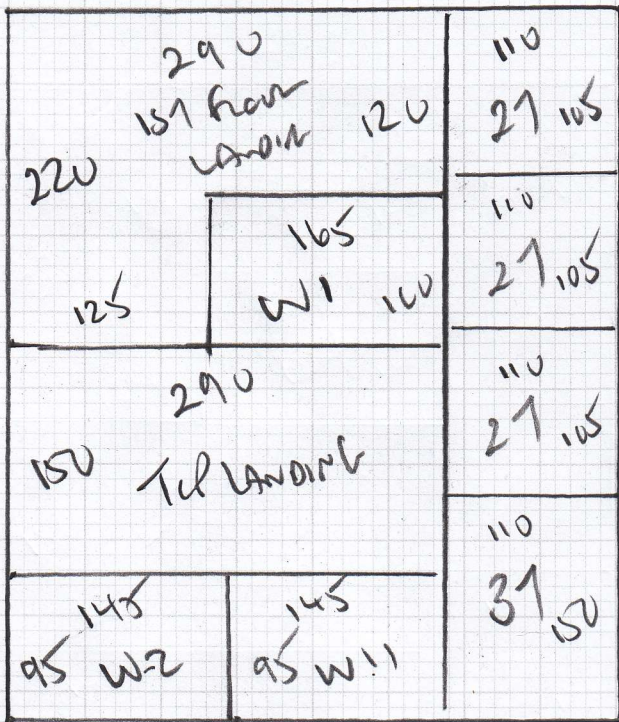 290
1ST FLOOR
LANDIN
120
220
165
W1
100
125
290
150 TOP LANDING
145
95 W-2
145
95 W11
110
21 105
110
21 105
110
21 105
110
31 150